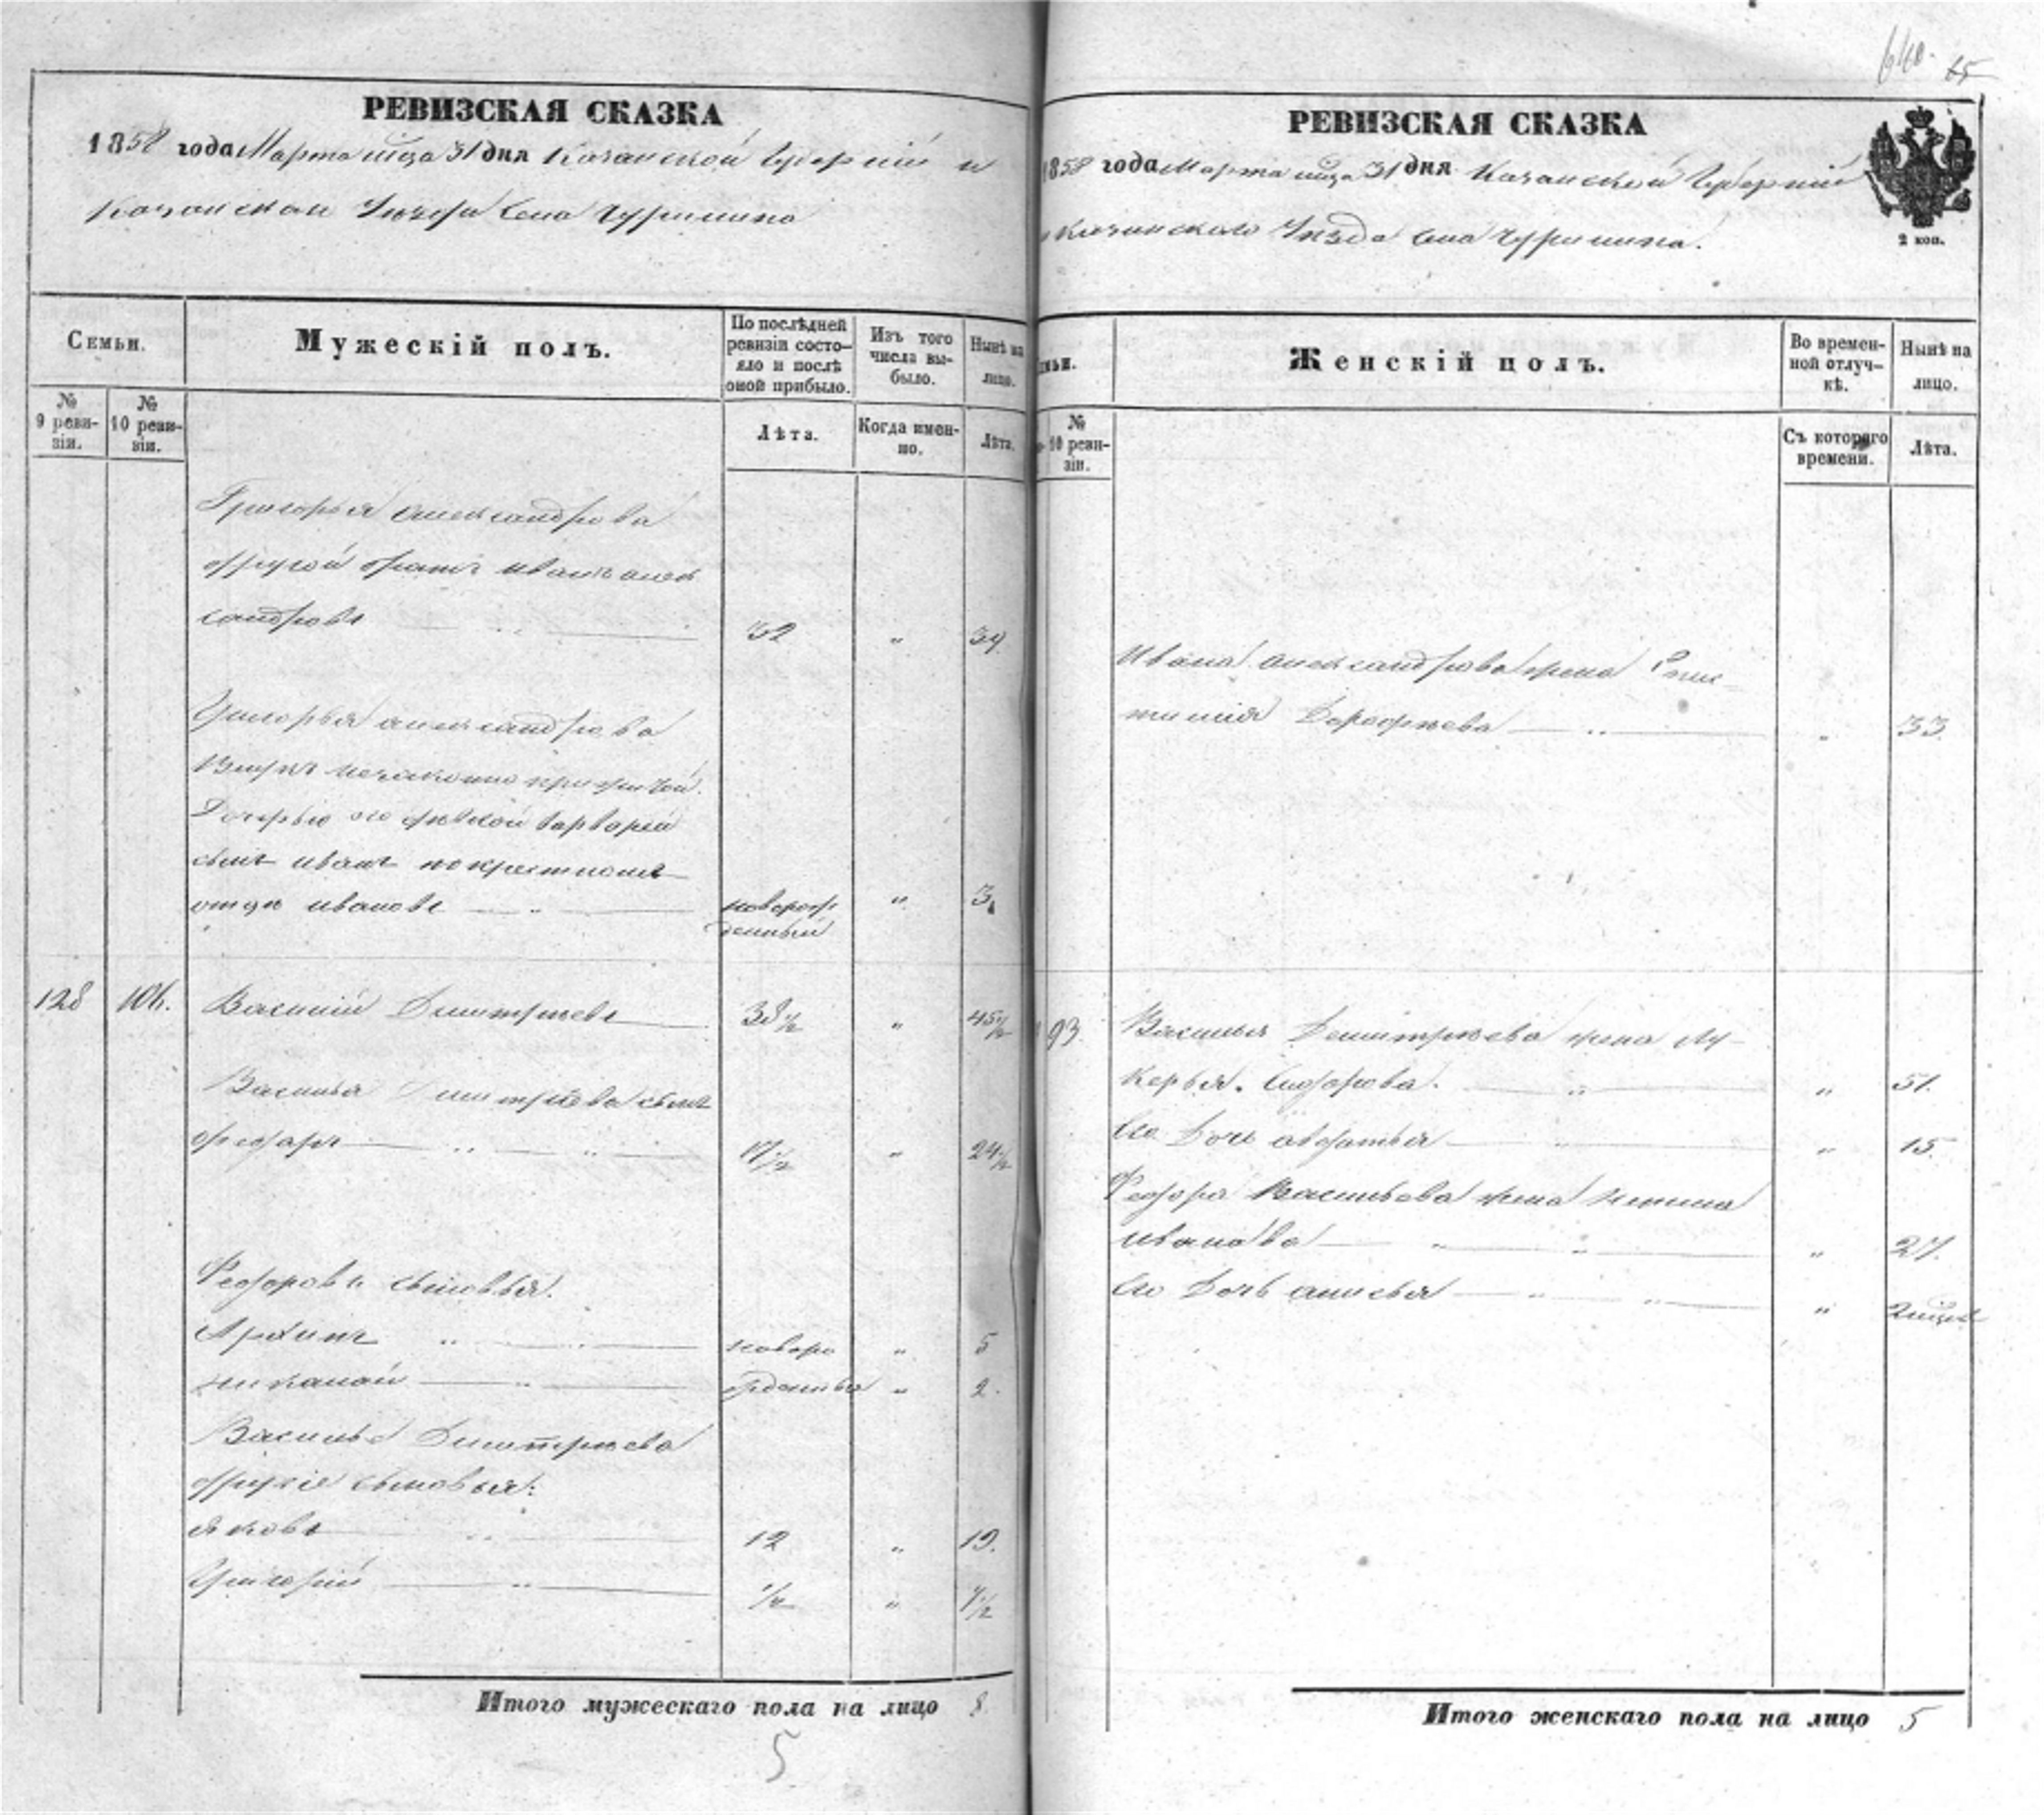 640. 65
РЕВИЗСКАЯ СКАЗКА
1858 года Марта мца 31 дня Казанской Губернiи и
Казанскаго Уѣзда Села Чурилина
Семьи.
Мужескiй полъ.
По послѣдней ревизiи состо-
яло и послѣ
оной прибыло.
Изъ того
числа вы-
было.
Нынѣ на
лицо.
№
9 реви-
зiи.
№
10 реви-
зiи.
Лѣта.
Когда имен-
но.
Лѣта.
Григорья Александрова
другой братъ Иванъ Алек
сандровъ 32 " 39.
Григорья Александрова
Внукъ незаконно прижитой
Дочерью его дѣвкой Варварой
сынъ Иванъ по крестному
отцу Ивановъ новорож
денный " 3.
128 106. Василiй Димитрiевъ 38½ " 45½
Василья Димитрiева сынъ
Феодоръ 17½ " 24½
Феодоровы сыновья.
Архипъ новоро " 5
Никаной жденные " 2.
Василья Димитрiева
другiе сыновья:
Яковъ 12 " 19.
Григорiй ½ " 7½
Итого мужескаго пола на лицо 8
5
РЕВИЗСКАЯ СКАЗКА
1858 года Марта мца 31 дня Казанской Губернiи
и Казанскаго Уѣзда Села Чурилина.
2 коп.
мьи.
Женскiй полъ.
Во времен-
ной отлуч-
кѣ.
Нынѣ на
лицо.
№
10 реви-
зiи.
Съ котораго
времени.
Лѣта.
Ивана Александрова жена
Дорофѣева " 33.
93. Василья Димитрiева жена Лу-
керья Сидорова. " 51.
Его Дочь Авдотья " 15.
Феодора Васильева жена
Иванова " 27.
Его Дочь Анисья " 2 мца
Итого женскаго пола на лицо 5